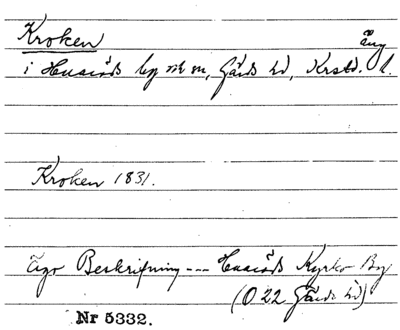 Kroken äng
i Huaröds by o sn, Gärds hd, Krstd. l.
Kroken 1831.
Ägo Beskrifning --- Huaröds Kyrko By
(O 22 Gärds hd)
Nr 5332.